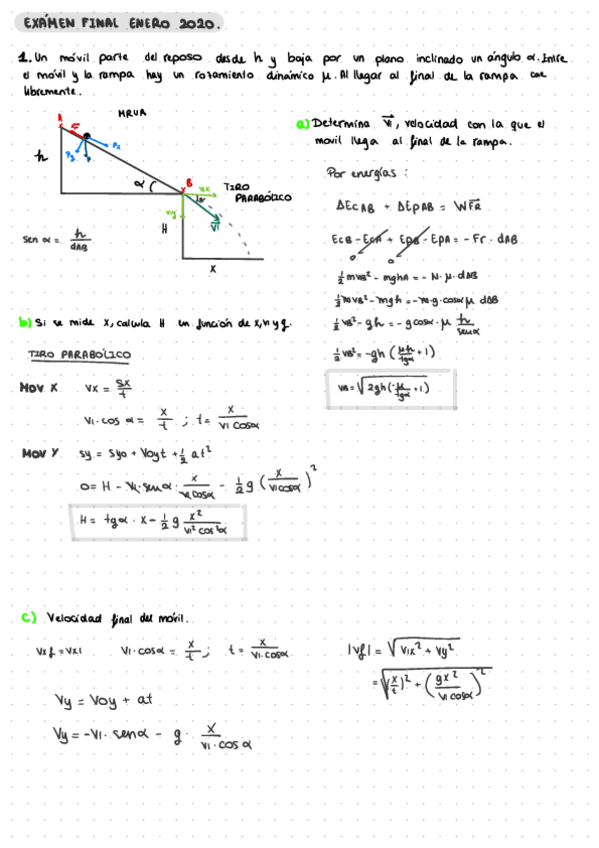 EXÁMEN FINAL ENERO 2020.
1. Un móvil parte del reposo desde h y baja por un plano inclinado un ángulo α. Entre
el móvil y la rampa hay un rozamiento dinámico μ. Al llegar al final de la rampa cae
libremente.
MRUA
A
Px
Py
P
h
α
B
VIX
TIRO
PARABÓLICO
VIY
α
VI
H
X
sen α = h/dAB
a) Determina VI, velocidad con la que el
movil llega al final de la rampa.
Por energías :
ΔECAB + ΔEPAB = WFR
ECB - ECA + EPB - EPA = - Fr · dAB
1/2 mVB² - mghA = - N · μ · dAB
1/2 mVB² - mgh = - m · g · cosα μ dAB
1/2 VB² - gh = - g cosα · μ h/senα
1/2 VB² = -gh (μh/tgα + 1)
VB = √2gh(-μ/tgα + 1)
b) Si se mide X, calcula H en función de X, VI y g.
TIRO PARABÓLICO
MOV X VX = SX/t
VI · cos α = X/t ; t = X/VI cosα
MOV Y Sy = Syo + Voyt + 1/2 at²
0 = H - VI · senα · X/VI cosα - 1/2 g (X/VI cosα)²
H = tgα · X - 1/2 g X²/VI² cos²α
c) Velocidad final del móvil.
VXf = VXI VI · cosα = X/t ; t = X/VI · cosα
Vy = Voy + at
Vy = -VI · senα - g · X/VI · cos α
|Vf| = √VIX² + Vy²
= √(X/t)² + (gX²/VI cosα)²